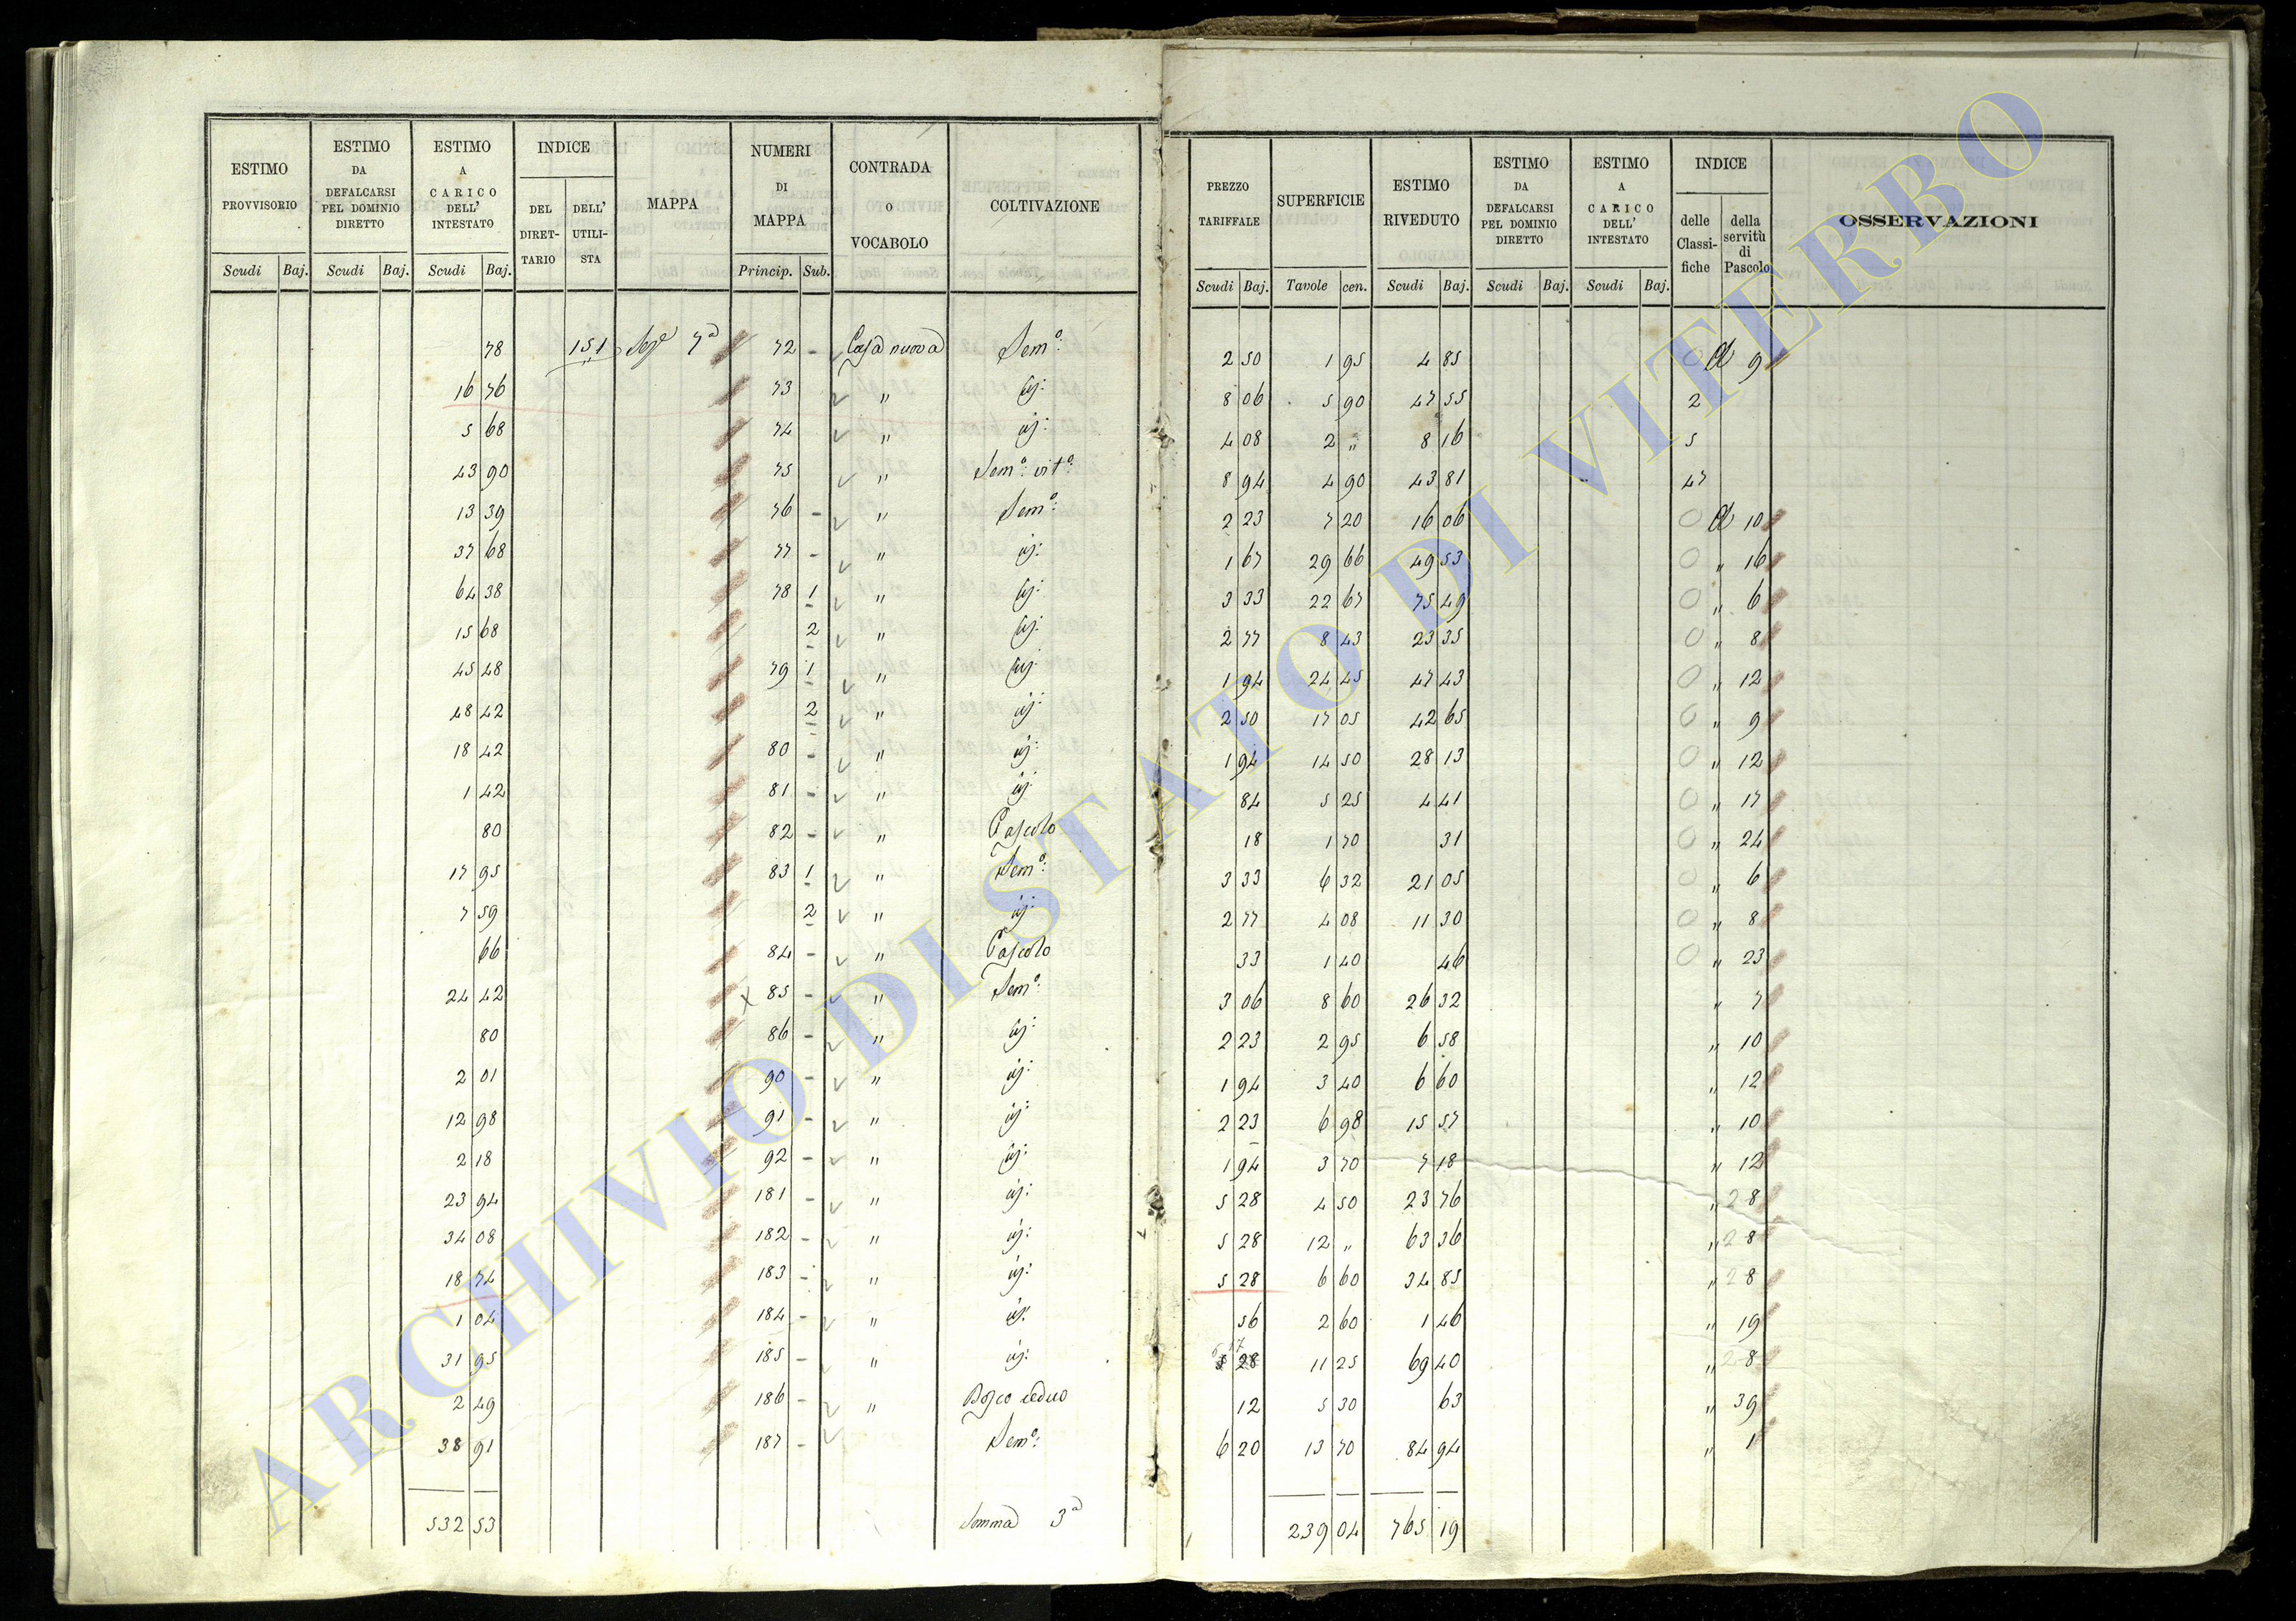 ESTIMO PROVVISORIO
ESTIMO DA DEFALCARSI PEL DOMINIO DIRETTO
ESTIMO A CARICO DELL' INTESTATO
INDICE
DEL DIRET-TARIO
DELL' UTILI-STA
MAPPA
NUMERI DI MAPPA
CONTRADA O VOCABOLO
COLTIVAZIONE
PREZZO TARIFFALE
SUPERFICIE
ESTIMO RIVEDUTO
ESTIMO DA DEFALCARSI PEL DOMINIO DIRETTO
ESTIMO A CARICO DELL' INTESTATO
INDICE
delle Classi-fiche
della servitù di Pascolo
OSSERVAZIONI
Scudi Baj. Scudi Baj. Scudi Baj. Princip. Sub. Scudi Baj. Tavole cen. Scudi Baj. Scudi Baj. Scudi Baj.
78 151 Sez.e 7a 72 - Casa nuova Sem.o: 2 50 1 95 4 85 0 a 9
16 76 73 " id: 8 06 5 90 47 55 2
5 68 74 " id: 4 08 2 " 8 16 5
43 90 75 " Sem.o: vit.o: 8 94 4 90 43 81 47
13 39 76 - " Sem.o: 2 23 7 20 16 06 0 a 10
37 68 77 - " id: 1 67 29 66 49 53 0 " 16
64 38 78 1 " id: 3 33 22 67 75 49 0 " 6
15 68 2 " id: 2 77 8 43 23 35 0 " 8
45 48 79 1 " id: 1 94 24 45 47 43 0 " 12
48 42 2 " id: 2 50 17 05 42 65 0 " 9
18 42 80 - " id: 1 94 14 50 28 13 0 " 12
1 42 81 - " id: 84 5 25 4 41 0 " 17
80 82 - " Pascolo 18 1 70 31 0 " 24
17 95 83 1 " Sem.o: 3 33 6 32 21 05 0 " 6
7 59 2 " id: 2 77 4 08 11 30 0 " 8
66 84 - " Pascolo 33 1 40 46 0 " 23
24 42 x 85 - " Sem.o: 3 06 8 60 26 32 " 7
80 86 - " id: 2 23 2 95 6 58 " 10
2 01 90 - " id: 1 94 3 40 6 60 " 12
12 98 91 - " id: 2 23 6 98 15 57 " 10
2 18 92 - " id: 1 94 3 70 7 18 " 12
23 94 181 - " id: 5 28 4 50 23 76 " 28
34 08 182 - " id: 5 28 12 " 63 36 " 28
18 74 183 - " id: 5 28 6 60 34 85 " 28
1 04 184 - " id: 56 2 60 1 46 " 19
31 95 185 - " id: 5 28 11 25 69 40 " 28
2 49 186 - " Bosco ceduo 12 5 30 63 " 39
38 91 187 - Sem.o: 6 20 13 70 84 94 " 1
532 53 Somma 3a 239 04 765 19
ARCHIVIO DI STATO DI VITERBO